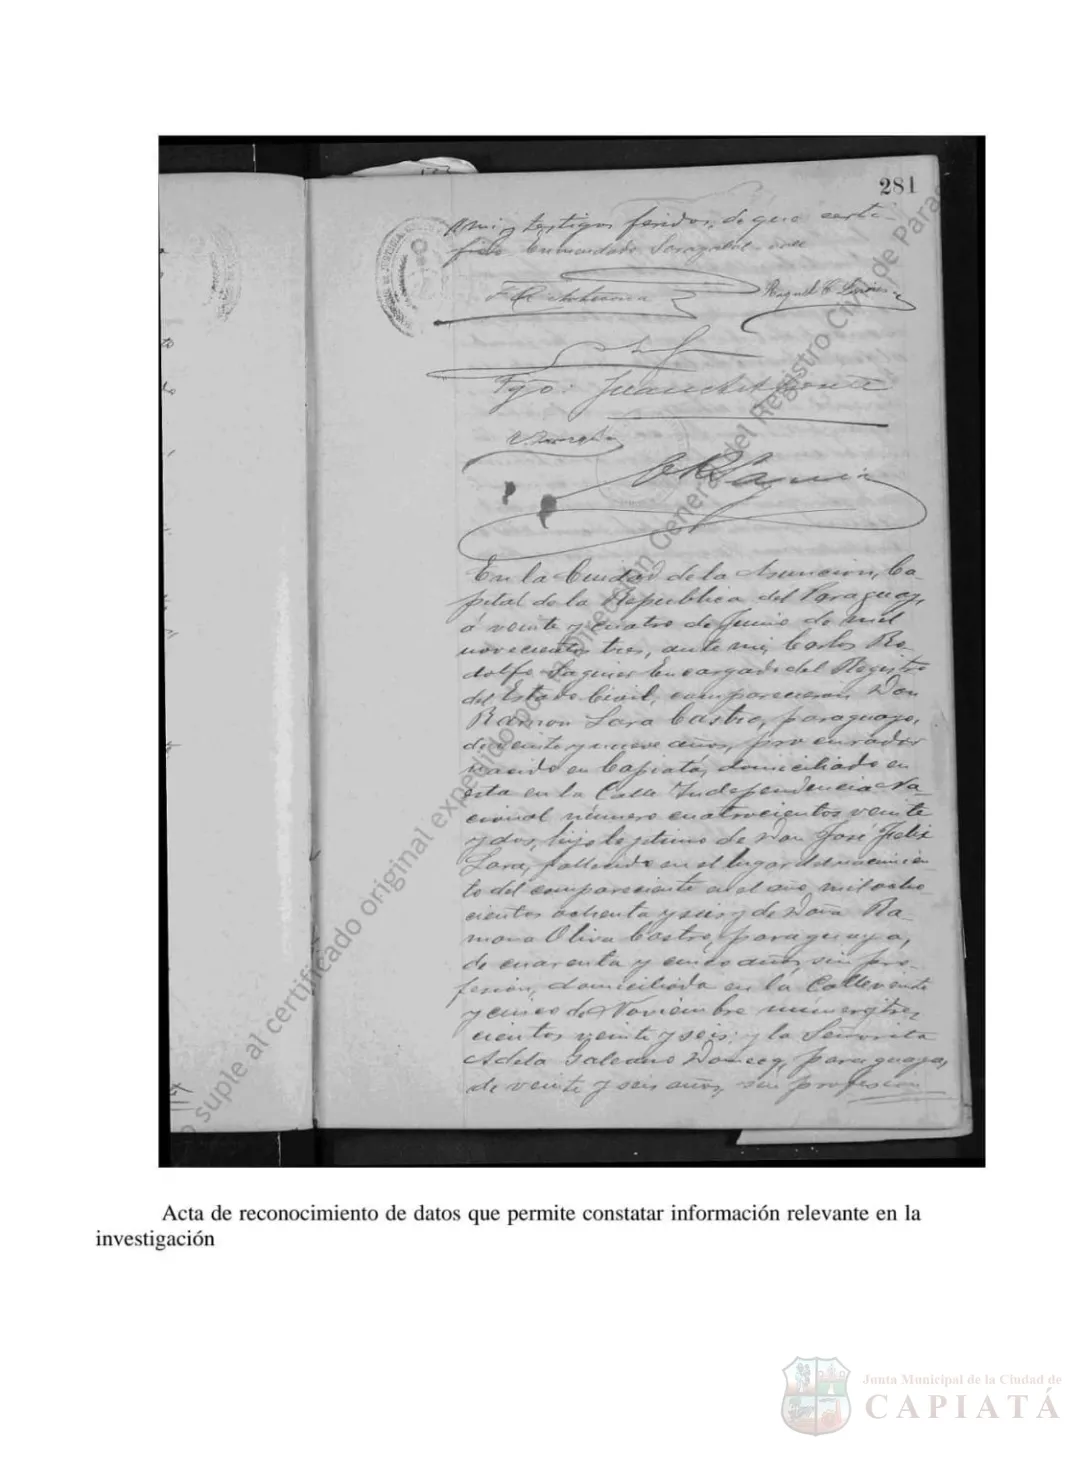 281
y mis testigos feridos, de que certi-
fico Enmendado
Raquel C. Livieres
Tgo: Juan
En la Ciudad de la Asuncion, Ca-
pital de la Republica del Paraguay,
á veinte y cuatro de Junio de mil
novecientos tres, ante mi, Carlos Ro-
dolfo Saguier Encargado del Registro
del Estado Civil, comparecieron Don
Ramon Lara Castro, paraguayo,
de veinte y nueve años, procurador
nacido en Capiatá, domiciliado en
esta en la Calle Independencia Na-
cional número cuatrocientos veinte
y dos, hijo legitimo de Don José Felix
Lara, fallecido en el lugar del nacimien-
to del compareciente en el año mil ocho
cientos ochenta y seis y de Doña Ra-
mona Oliva Castro, paraguaya,
de cuarenta y cinco años, sin pro-
fesion, domiciliada en la Calle veinte
y cinco de Noviembre número tres
cientos veinte y seis; y la Señorita
Adela Galeano Domecq, paraguaya,
de veinte y seis años, sin profesion
suple al certificado original expedido por la Dirección General del Registro Civil de Para
Acta de reconocimiento de datos que permite constatar información relevante en la
investigación
Junta Municipal de la Ciudad de
CAPIATÁ